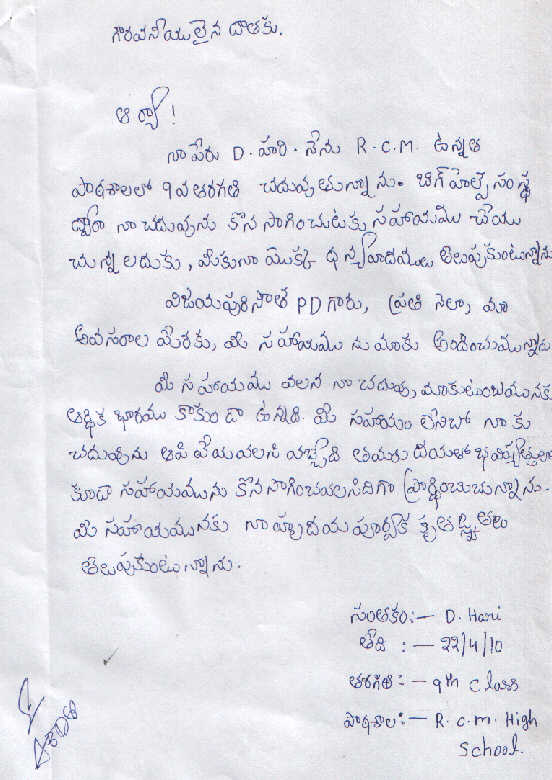 గౌరవనీయులైన దాతకు.
ఆర్యా!
నా పేరు D. హరి. నేను R.C.M. ఉన్నత
పాఠశాలలో 9వ తరగతి చదువుతున్నాను. బిగ్ హెల్ప్ సంస్థ
ద్వారా నా చదువును కొనసాగించుటకు సహాయము చేయు
చున్నందుకు, మీకు నా యొక్క ధన్యవాదములు తెలుపుకుంటున్నాను
విజయపురిసౌత్ PD గారు, ప్రతి నెలా, మా
అవసరాల మేరకు, మీ సహాయము ను మాకు అందించుచున్నారు
మీ సహాయము వలన నా చదువు, మాకుటుంబమునకు
ఆర్థిక భారము కాకుండా ఉన్నది. మీ సహాయం లేనిచో నాకు
చదువును ఆపి వేయవలసి వచ్చేది తమరు దయతో భవిష్యత్తులో
కూడా సహాయమును కొనసాగించవలసిదిగా ప్రార్థించుచున్నాను.
మీ సహాయమునకు నా హృదయ పూర్వక కృతజ్ఞతలు
తెలుపుకుంటున్నాను.
సంతకం:- D. Hari
తేది :- 22/4/10
తరగతి:- 9th Class
పాఠశాల:- R.C.M. High
School.